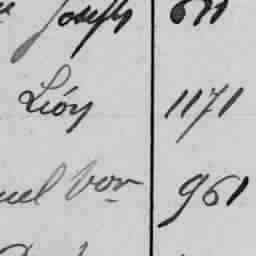 Joseph 611
Lión 1171
uel Vor 961